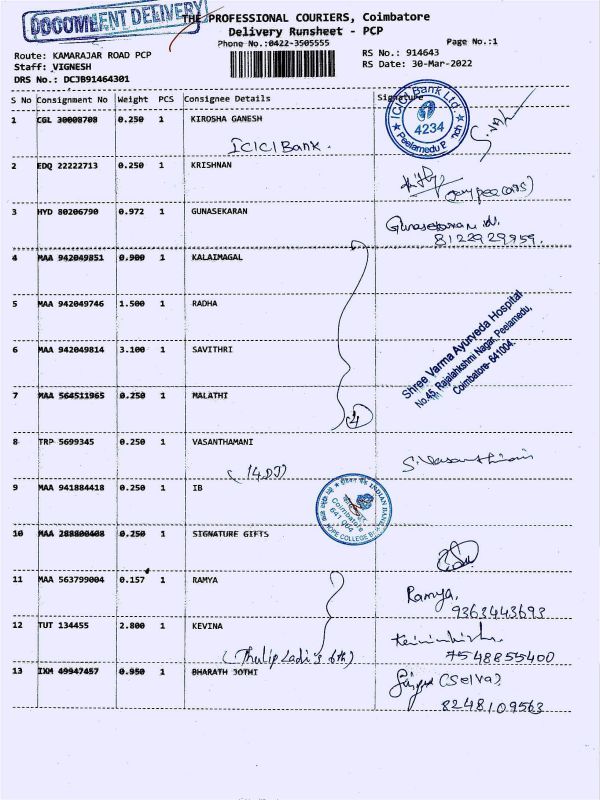 DOCUMENT DELIVERY
THE PROFESSIONAL COURIERS, Coimbatore
Delivery Runsheet - PCP
Phone No.:0422-3505555
Page No.:1
Route: KAMARAJAR ROAD PCP
RS No.: 914643
Staff: VIGNESH
RS Date: 30-Mar-2022
DRS No.: DCJB91464301
S No Consignment No Weight PCS Consignee Details Signature
1 CGL 30008708 0.250 1 KIROSHA GANESH
ICICI Bank.
ICICI Bank Ltd.
4234
Peelamedu
2 EDQ 22222713 0.250 1 KRISHNAN
3 HYD 80206790 0.972 1 GUNASEKARAN
Gunasekaran
8122929859.
4 MAA 942049851 0.900 1 KALAIMAGAL
5 MAA 942049746 1.500 1 RADHA
6 MAA 942049814 3.100 1 SAVITHRI
Shree Varma Ayurveda Hospital
No.45, Rajalahkshmi Nagar, Peelamedu,
Coimbatore- 641004.
7 MAA 564511965 0.250 1 MALATHI
4
8 TRP 5699345 0.250 1 VASANTHAMANI
S. Vasanthamani
9 MAA 941884418 0.250 1 IB
इंडियन बैंक INDIAN BANK
Coimbatore
641 004
HOPE COLLEGE
10 MAA 288800408 0.250 1 SIGNATURE GIFTS
11 MAA 563799004 0.157 1 RAMYA
Ramya,
9363443693
12 TUT 134455 2.800 1 KEVINA
7548855400
13 IXM 49947457 0.950 1 BHARATH JOTHI
(Selva)
8248109563